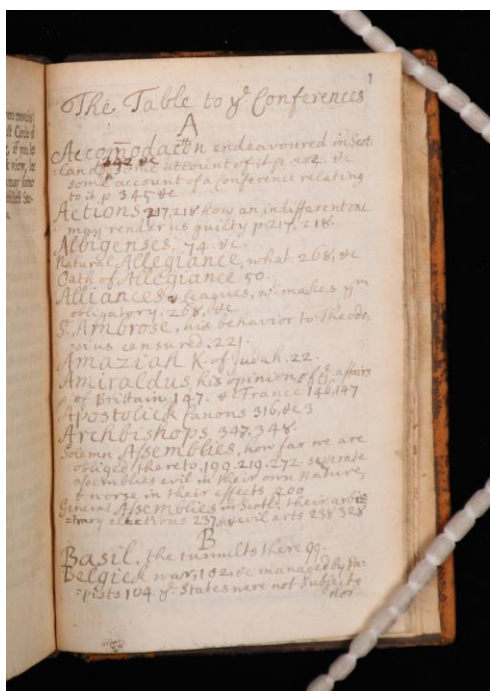 1
The Table to yᵉ Conferences
A
Accom̄odacōn endeavoured in Scot:
land, 342 &c some account of it p. 342. &c
some account of a Conference relating
to it p. 345 &c
Actions 217, 218 how an indifferent one
may render us guilty p 217, 218.
Albigenses, 74. &c.
Natural Allegiance, what. 268, &c
Oath of Allegiance 50.
Alliances & Leagues, wᵗ makes yᵐ
obligatory. 268, &c
Sᵗ Ambrose, his behavior to Theodo:
sius censured. 221.
Amaziah K. of Judah. 22.
Amiraldus, his opinion of yᵉ affairs
of Brittain, 147. & France 146, 147
Apostolick Canons 316, &c 3
Archbishops, 347, 348.
Solemn Assemblies, how far we are
obliged thereto, 199. 219. 272. seperate
assemblies evil in their own nature,
& worse in their effects 200
General Assemblies in Scotld their arbi=
=trary elections 237, & evil arts 238 328
B
Basil, the tumults there 99.
Belgick war, 102. &c managed by Pa:
=pists 104. yᵉ States were not Subjects
nor